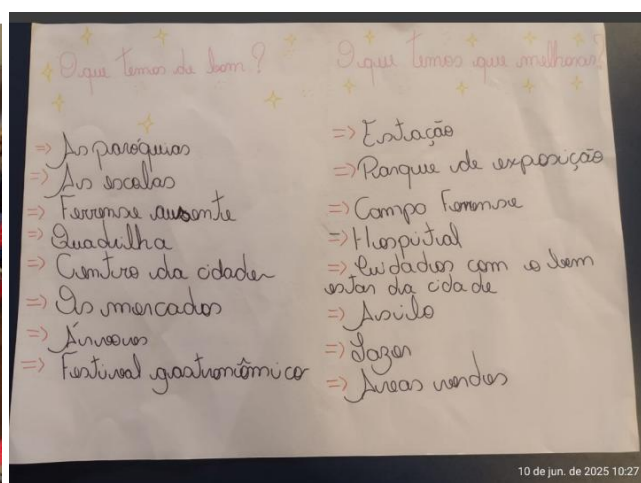 O que temos de bom?
=> As paróquias
=> As escolas
=> Ferrense ausente
=> Quadrilha
=> Centro da cidade
=> Os mercados
=> Árvores
=> Festival gastronômico
O que temos que melhorar?
=> Estação
=> Parque de exposição
=> Campo Ferrense
=> Hospital
=> Cuidados com o bem
estar da cidade
=> Asilo
=> Lazer
=> Áreas verdes
10 de jun. de 2025 10:27